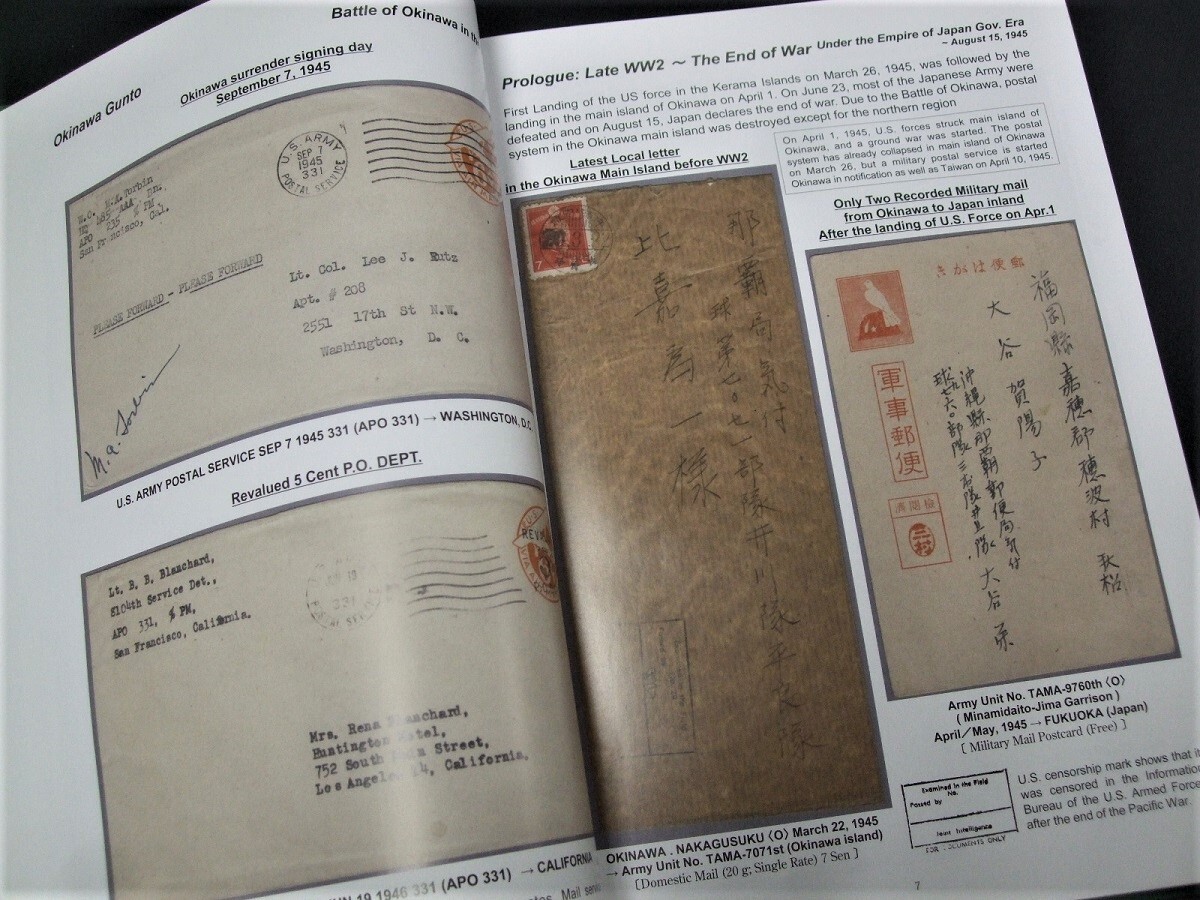 Battle of Okinawa in the
Okinawa Gunto
Okinawa surrender signing day
September 7, 1945
W.O. M.A. Torbin
APO 235 % PM
San Francisco, Cal.
U.S. ARMY
SEP 7
1945
331
POSTAL SERVICE
PLEASE FORWARD - PLEASE FORWARD
Lt. Col. Lee J. Rutz
Apt. # 208
2551 17th St N.W.
Washington, D. C.
U.S. ARMY POSTAL SERVICE SEP 7 1945 331 (APO 331) → WASHINGTON, D.C.
Revalued 5 Cent P.O. DEPT.
Lt. B. B. Blanchard,
8104th Service Det.,
APO 331, % PM,
San Francisco, California.
331
Mrs. Rena Blanchard,
Huntington Hotel,
752 South Main Street,
Los Angeles 14, California.
UN 19 1946 331 (APO 331) → CALIFORNIA
Prologue: Late WW2 ～ The End of War Under the Empire of Japan Gov. Era
~ August 15, 1945
First Landing of the US force in the Kerama Islands on March 26, 1945, was followed by the
landing in the main island of Okinawa on April 1. On June 23, most of the Japanese Army were
defeated and on August 15, Japan declares the end of war. Due to the Battle of Okinawa, postal
system in the Okinawa main island was destroyed except for the northern region
On April 1, 1945, U.S. forces struck main island of
Okinawa, and a ground war was started. The postal
system has already collapsed in main island of Okinawa
on March 26, but a military postal service is started
Okinawa in notification as well as Taiwan on April 10, 1945.
Latest Local letter
in the Okinawa Main Island before WW2
那覇局気付
球第七〇七一部隊井川隊平良隊
比嘉為一様
OKINAWA . NAKAGUSUKU〈O〉March 22, 1945
→ Army Unit No. TAMA-7071st (Okinawa island)
［Domestic Mail (20 g; Single Rate) 7 Sen ］
Only Two Recorded Military mail
from Okinawa to Japan inland
After the landing of U.S. Force on Apr.1
きがは便郵
軍事郵便
済閲検
福岡縣嘉穂郡穂波村 秋松
大谷賀陽子
沖縄縣那覇郵便局気付
大谷
Army Unit No. TAMA-9760th〈O〉
( Minamidaito-Jima Garrison )
April／May, 1945 → FUKUOKA (Japan)
［ Military Mail Postcard (Free) ］
Examined in the Field
No.
Passed by
Joint Intelligence
U.S. censorship mark shows that it
was censored in the Information
Bureau of the U.S. Armed Force
after the end of the Pacific War.
7